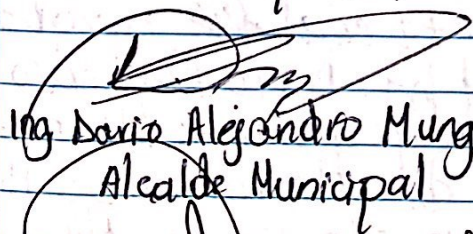 Ing Dario Alejandro Mung
Alcalde Municipal